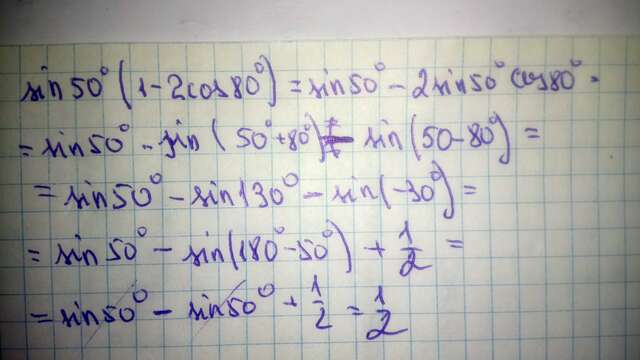 sin50°(1-2cos80°)=sin50°-2sin50°cos80°=
=sin50°-sin(50°+80°)-sin(50-80°)=
=sin50°-sin130°-sin(-30°)=
=sin50°-sin(180°-50°)+1/2=
=sin50°-sin50°+1/2=1/2